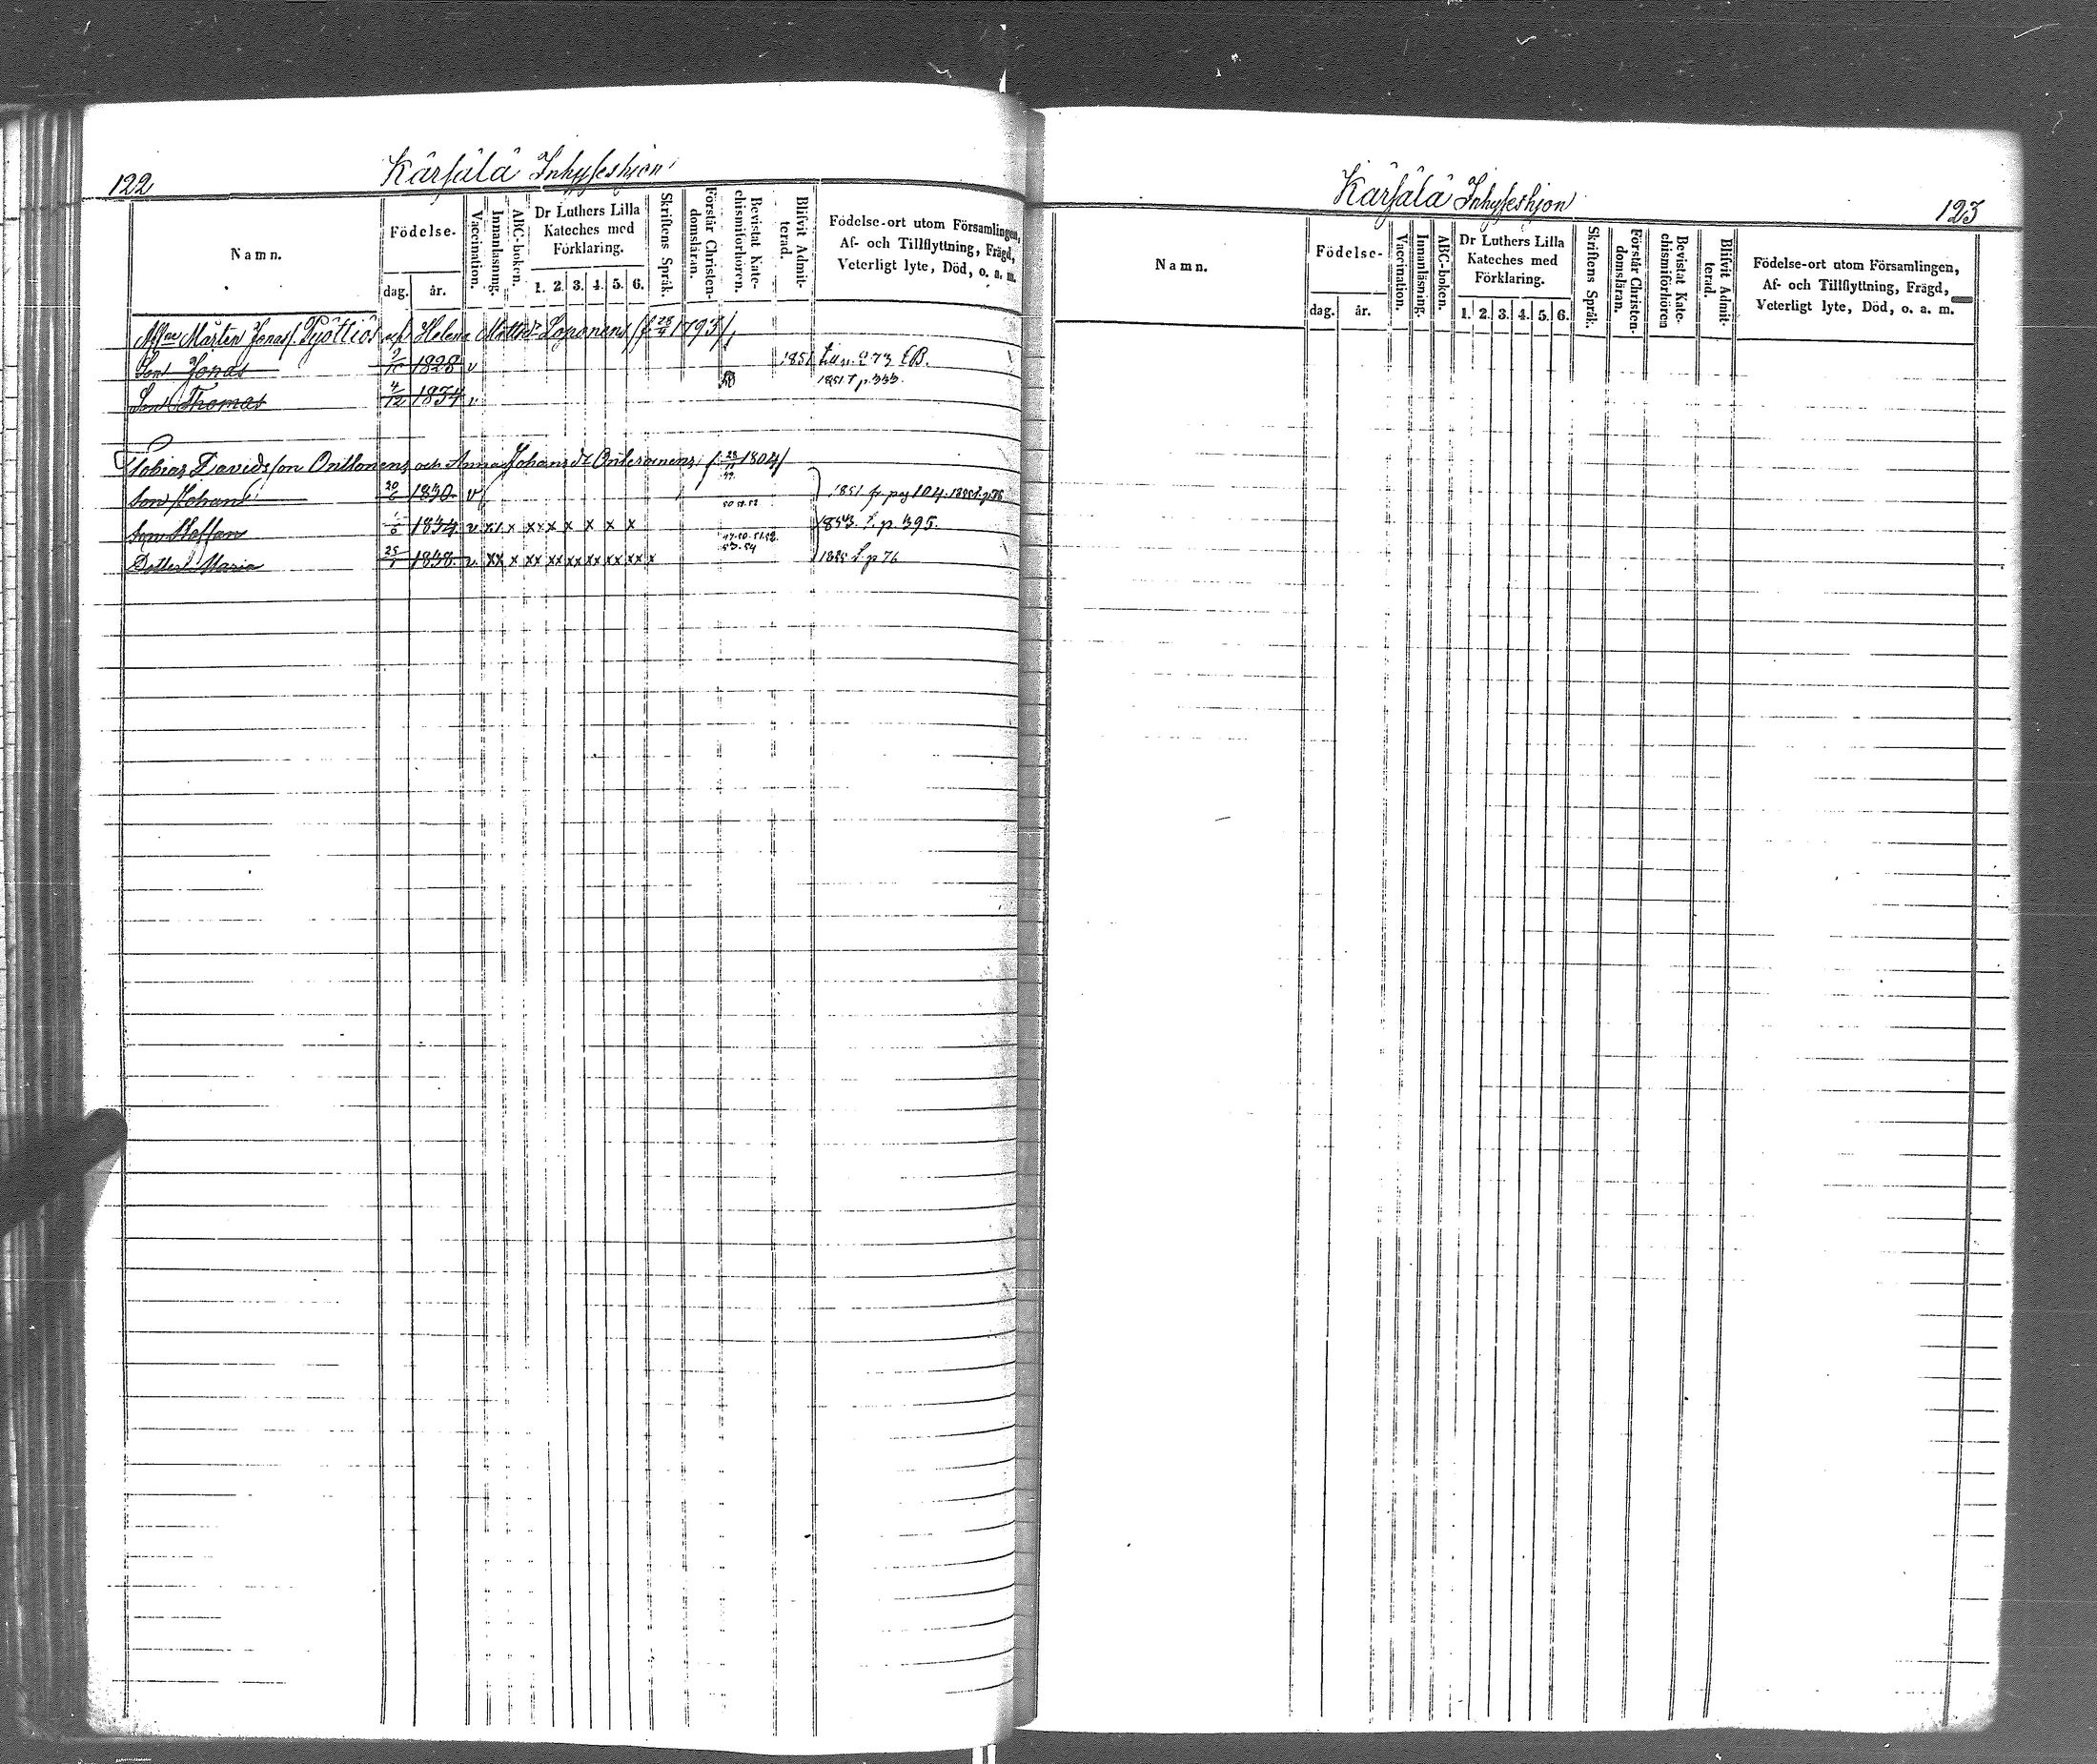 122
Kärsälä Inhyseshjon
Namn.
Födelse-
dag.
år.
Vaccination.
Innanläsning.
ABC-boken.
Dr Luthers Lilla
Kateches med
Förklaring.
1. 2. 3. 4. 5. 6.
Skriftens Språk.
Förstår Christen-
domsläran.
Bevistat Kate-
chismiförhören.
Blifvit Admit-
terad.
Födelse-ort utom Församlingen,
Af- och Tillflyttning, Frägd,
Veterligt lyte, Död, o. a. m.
Mårten Jonass. Helena
Son Jonas 1828 v 1851
Son Thomas 4/12 1834 v 1851 f p. 333.
Tobias Davidsson och Anna Johansdr 1804
Son Johan 20/6 1830 v 1851 fr pag 104.
Son Staffan 1834 v xx x xx x x x x x 1853. f. p 395.
Dotter Maria 25/1 1838 v. xx x xx xx xx xx xx xx x 1855 f. p 76
Kärsälä Inhyseshjon
123
Namn.
Födelse-
dag.
år.
Vaccination.
Innanläsning.
ABC-boken.
Dr Luthers Lilla
Kateches med
Förklaring.
1. 2. 3. 4. 5. 6.
Skriftens Språk.
Förstår Christen-
domsläran.
Bevistat Kate-
chismiförhören
Blifvit Admit-
terad.
Födelse-ort utom Församlingen,
Af- och Tillflyttning, Frägd,
Veterligt lyte, Död, o. a. m.